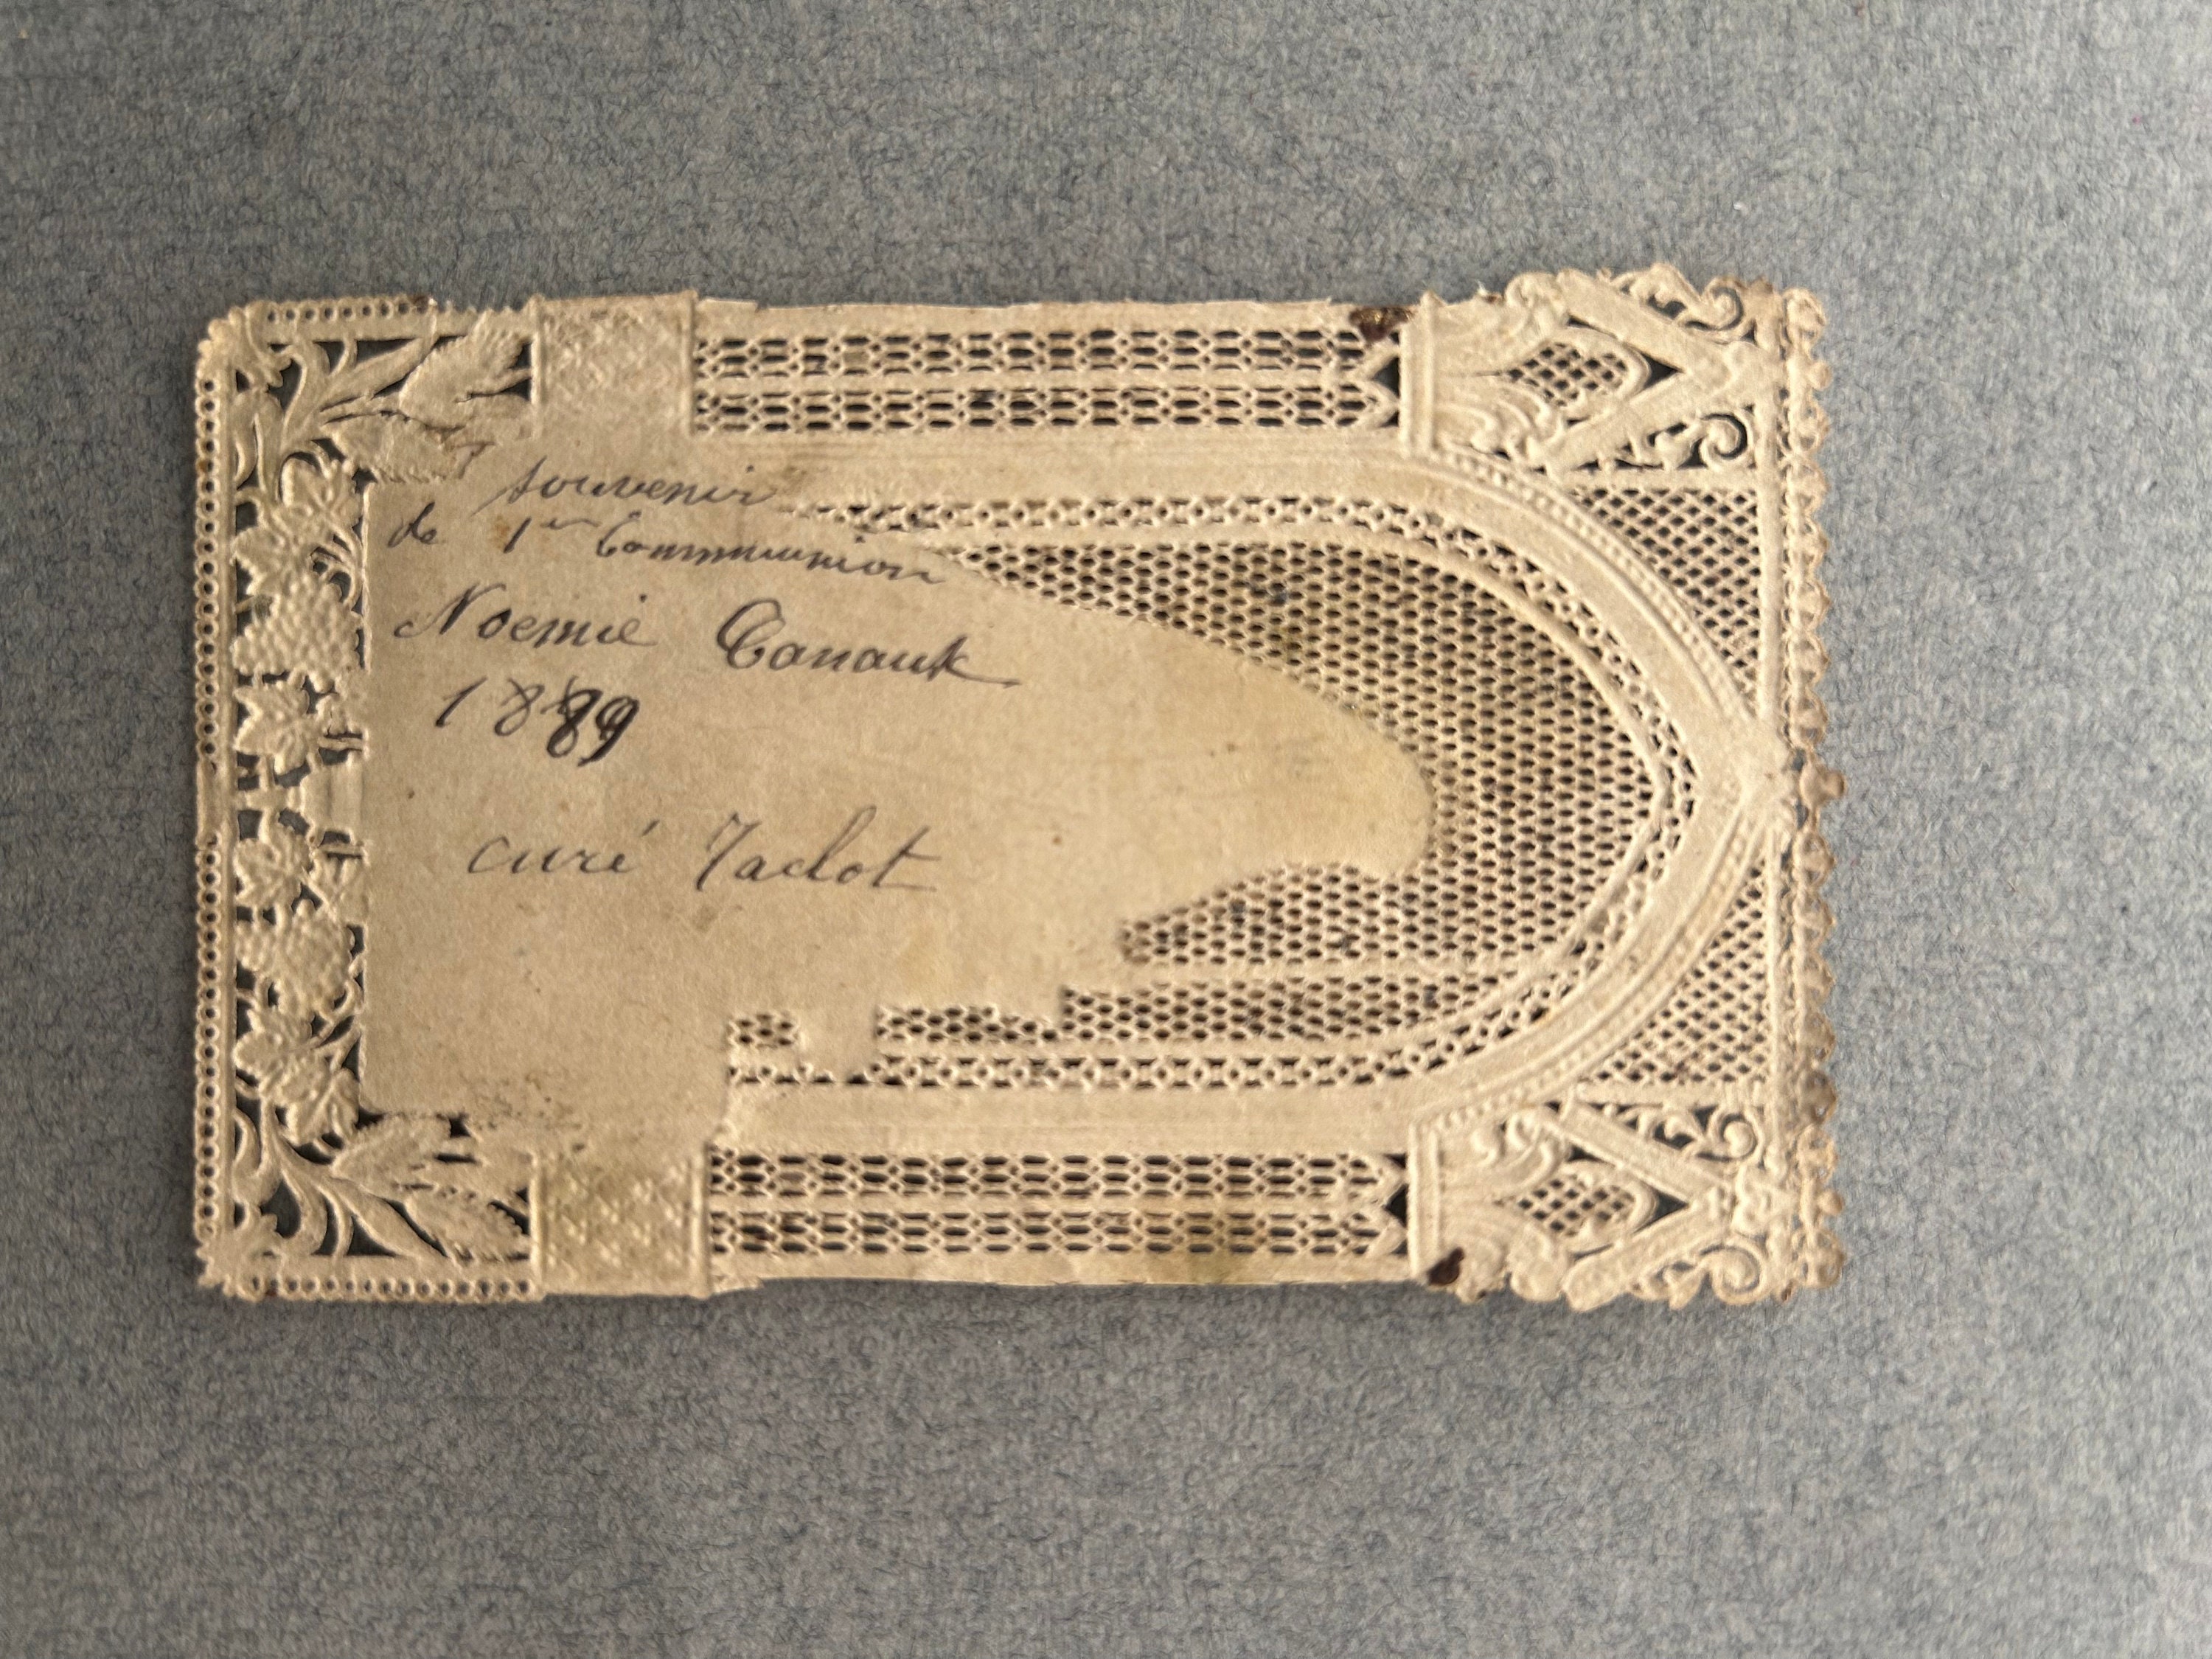 souvenir
de 1er Communion
Noemie Canauk
1889
curé Taclot